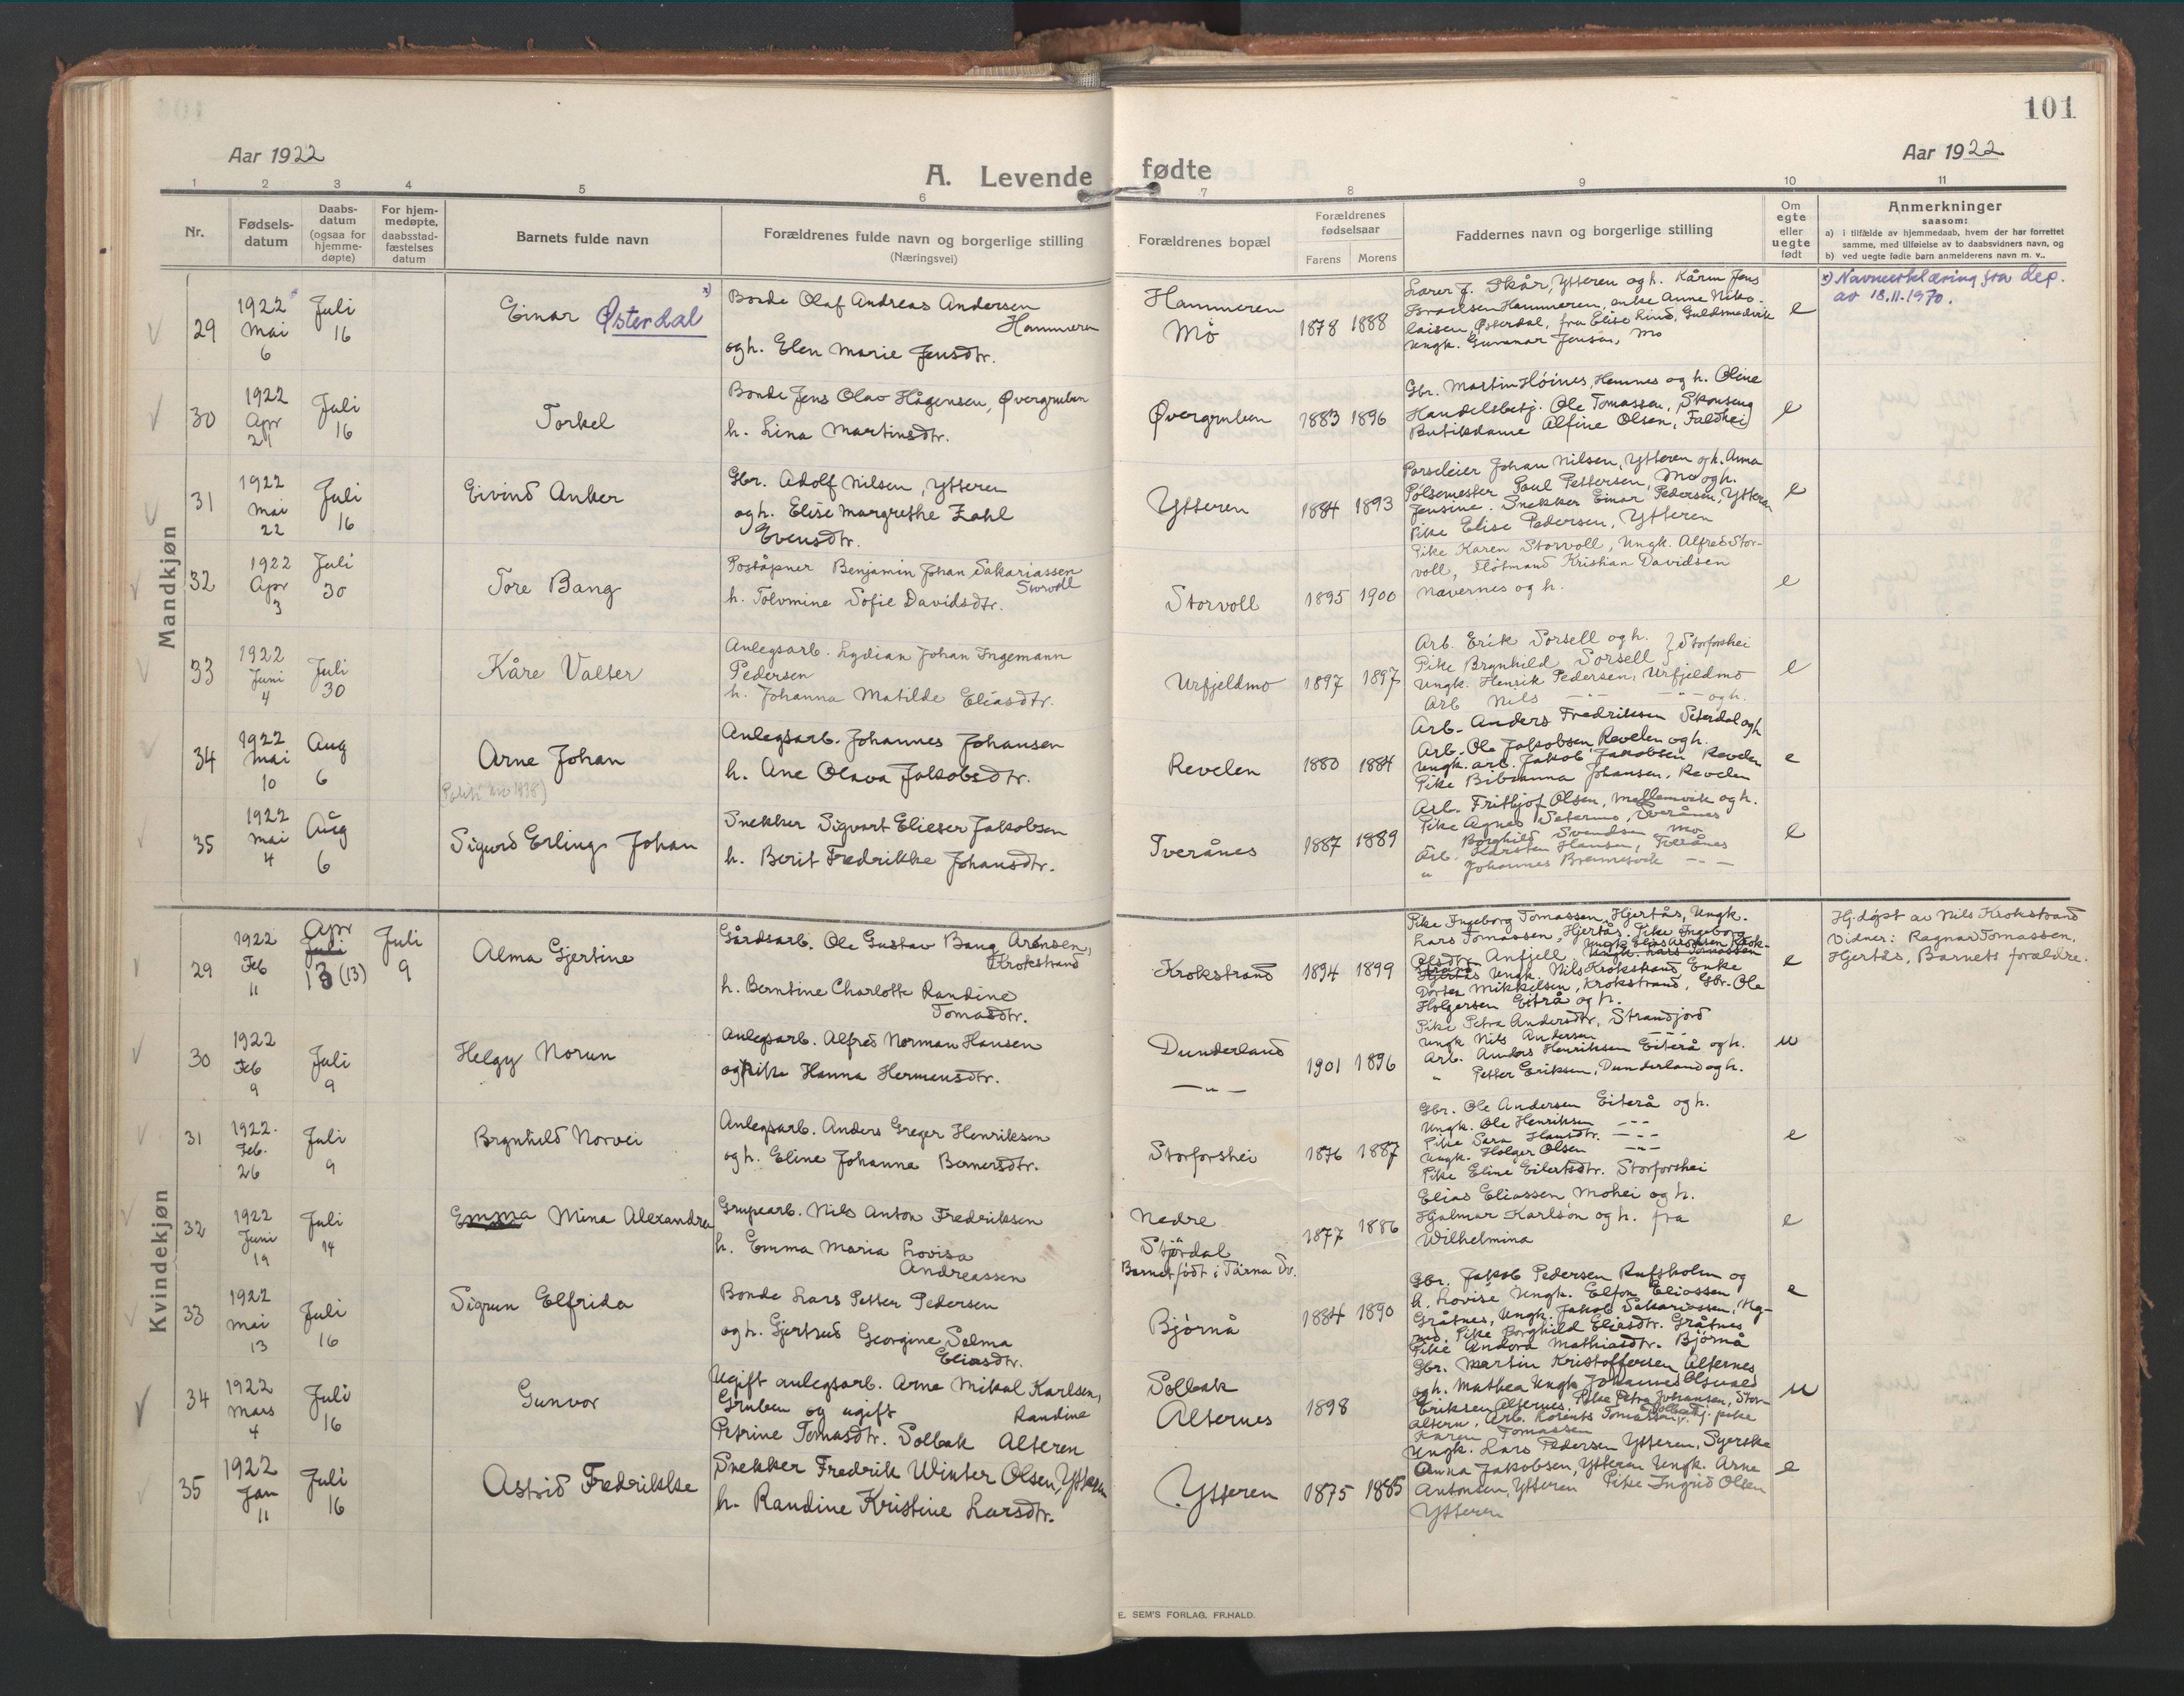 101
Aar 1922
Aar 1922
A. Levende fødte
1 2 3 4 5 6 7 8 9 10 11
Nr.
Fødsels-
datum
Daabs-
datum
(ogsaa for
hjemme-
døpte)
For hjem-
medøpte,
daabsstad-
fæstelses
datum
Barnets fulde navn
Forældrenes fulde navn og borgerlige stilling
(Næringsvei)
Forældrenes bopæl
Forældrenes
fødselsaar
Farens Morens
Faddernes navn og borgerlige stilling
Om
egte
eller
uegte
født
Anmerkninger
saasom:
a) i tilfælde av hjemmedaab, hvem der har forrettet
samme, med tilføielse av to daabsvidners navn, og
b) ved uegte fødte barn anmelderens navn m. v..
Mandkjøn
29
1922
Mai
6
Juli
16
Einar Østerdal x)
Bonde Olaf Andreas Andersen
Hammeren
og h. Elen Marie Jensdtr.
Hammeren
Mo
1878 1888
Lærer J. Skår, Ytteren og h. Kåren Jens
Israelsen Hammeren, enke Anne Niko-
laisen, Østerdal, fru Elise Lind, Guldsmedvik
Ungk. Gunnar Jensen, Mo
e
x) Navneerklæring fra dep.
av 18.11.1970.
30
1922
Apr
21
Juli
16
Torkel
Bonde Jens Olao Hågensen, Øvergruben
h. Lina Martinsdtr.
Øvergruben
1883 1896
Gbr. Martin Höines, Hemnes og h. Oline
Handelsbetj. Ole Tomassen, Skonseng
Butikdame Alfine Olsen, Faldhei
e
31
1922
Mai
22
Juli
16
Eivind Anker
Gbr. Adolf Nilsen, Ytteren
og h. Elise Margrethe Zahl
Evensdtr.
Ytteren
1884 1893
Parseleier Johan Nilsen, Ytteren og h. Anna
Pølsemester Paul Pettersen, Mo og h.
Jensine. Snekker Einar Pedersen, Ytteren
Pike Elise Pedersen, Ytteren
e
32
1922
Apr
3
Juli
30
Tore Bang
Poståpner Benjamin Johan Sakariassen
Storvoll
h. Tolvmine Sofie Davidsdtr.
Storvoll
1895 1900
Pike Karen Storvoll, Ungk. Alfred Stor-
voll, Fløtmand Kristian Davidsen
Nævernes og h.
e
33
1922
Juni
4
Juli
30
Kåre Valter
Anlegsarb. Lydian Johan Ingemann
Pedersen
h. Johanna Matilde Eliasdtr.
Urfjeldmo
1897 1897
Arb. Erik Sorsell og h. } Storforshei
Pike Brynhild Sorsell
Ungk. Henrik Pedersen, Urfjeldmo
Arb Nils —"— —"— og h.
e
34
1922
Mai
10
Aug
6
Arne Johan
Anlegsarb. Johannes Johansen
h. Ane Olava Jakobsdtr.
Revelen
1880 1884
Arb. Anders Fredriksen Seterdal og h
Arb. Ole Jakobsen, Revelen og h.
Ungk. arb. Jakob Jakobsen Revelen
Pike Bibianna Johansen, Revelen
e
35
1922
Mai
4
Aug
6
Sigurd Erling Johan
Snekker Sigvart Elieser Jakobsen
h. Berit Fredrikke Johansdtr.
Tverånes
1887 1889
Arb. Fritjof Olsen, Mellemvik og h.
Pike Agnes Setermo, Tverånes
Borghild Svendsen Mo
Arb. Karsten Hansen, Tverånes
" Johannes Brennesvik — " —
e
Kvindekjøn
29
1922
Feb
11
Apr
Juli
13 (13)
Juli
9
Alma Gjertine
Gårdsarb. Ole Gustav Bang Arensen,
Krokstrand
h. Berntine Charlotte Randine
Tomasdtr.
Krokstrand
1894 1899
Pike Ingeborg Tomassen, Hjertås, Ungk.
Lars Tomassen, Hjertås. Pike Ingeborg
Olsdtr. Anfjell,
Hjertås Ungk. Nils Krokstrand, Enke
Dortea Mikkelsen, Krokstrand, Gbr. Ole
Holgersen Eiterå og h.
e
Hj. døpt av Nils Krokstrand
Vidner: Ragnar Tomassen,
Hjertås, Barnets forældre.
30
1922
Feb
9
Juli
9
Helgy Norun
Anlegsarb. Alfred Norman Hansen
og Pike Hanna Hermensdtr.
Dunderland
—"—
1901 1896
Pike Petra Andersdtr, Strandjord
Ungk Nils Andersen — " —
Arb. Anders Henriksen Eiterå og h.
" Petter Eriksen, Dunderland og h.
u
31
1922.
Feb.
26
Juli
9
Brynhild Norvei
Anlegsarb. Anders Greger Henriksen
og h. Eline Johanna Bernersdtr.
Storforshei
1876 1887
Gbr. Ole Andersen Eiterå og h.
Ungk. Ole Henriksen — " —
Pike Sara Hansdtr. — " —
Ungk. Holger Olsen — " —
Pike Eline Eilertsdtr. Storforshei
e
32
1922
Juni
19
Juli
14
Emma Mina Alexandra
Grupearb. Nils Anton Fredriksen
h. Emma Maria Lovisa
Andreassen
Nedre
Stjørdal
Barnet født i Tärna Sv.
1877 1886
Elias Eliassen Mohei og h.
Hjalmar Karlsön og h. fra
Wilhelmina
e
33
1922
Mai
13
Juli
16
Sigrun Elfrida
Bonde Lars Petter Pedersen
og h. Gjertrud Georgine Selma
Eliasdtr.
Bjørnå
1884 1890
Gbr. Jakob Pedersen Rufsholm og
h. Lovise Ungk. Elfon Eliassen
Gråtnes, Ungk. Jakob Sakariassen,
Pike Borghild Eliasdtr. Gråtnes
Pike Andora Mathiasdtr. Bjørnå
e
34
1922
Mars
4
Juli
16
Gunvor
Ugift anlegsarb. Arne Mikal Karlsen,
Gruben og ugift Randine
Petrine Tomasdtr. Solbak Alteren
Solbak
Alternes
1898
Gbr. Martin Kristoffersen Alternes
og h. Mathea Ungk Johannes
Eriksen Alternes, Pike Petra Johansen, Stor-
altern, Arb. Tomassen pike
Karen Tomassen
u
35
1922
Jan
11
Juli
16
Astrid Fredrikke
Snekker Fredrik Winter Olsen, Ytteren
h. Randine Kristine Larsdtr.
Ytteren
1875 1885
Ungk. Lars Pedersen Ytteren, Syerske
Anna Jakobsen, Ytteren Ungk. Arne
Antonsen, Ytteren Pike Ingrid Olsen
Ytteren
e
E. SEM'S FORLAG, FR.HALD.